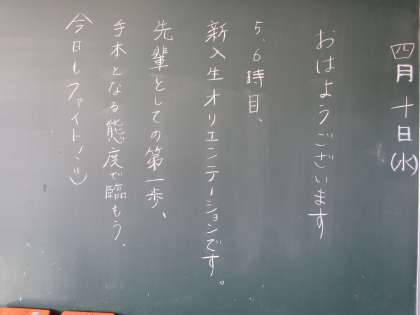 四月十日(水)
おはようございます
5、6時目、
新入生オリエンテーションです。
先輩としての第一歩、
手本となる態度で臨もう。
今日もファイト!!